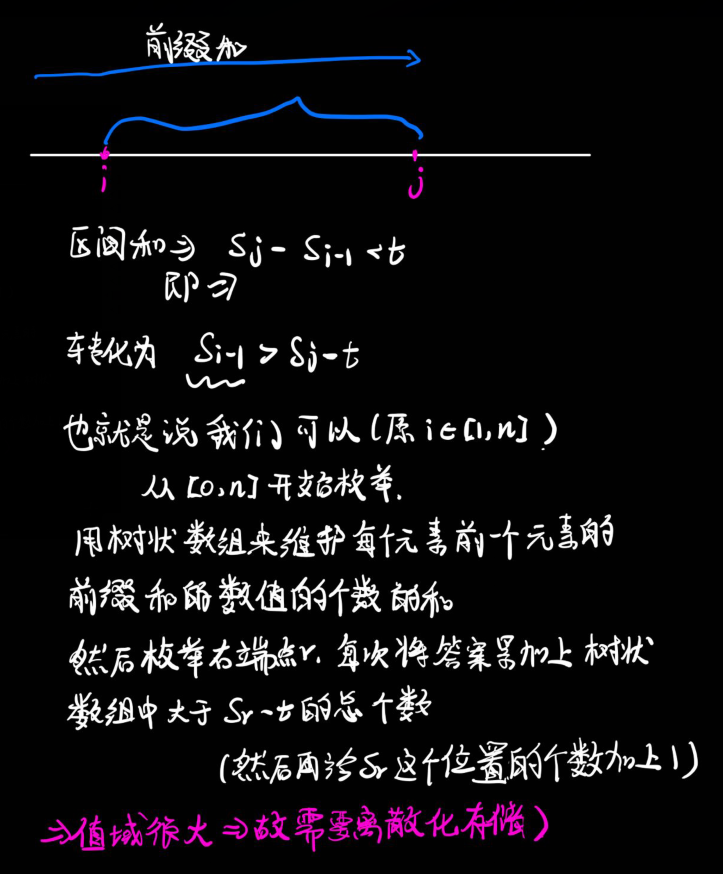 前缀和
i j
区间和⇒ Sj - Si-1 < t
即⇒
转化为 Si-1 > Sj - t
也就是说我们可以(原 i∈[1,n])
从 [0,n] 开始枚举.
用树状数组来维护每个元素前一个元素的
前缀和的数值的个数的和
然后枚举右端点r. 每次将答案累加上树状
数组中大于 Sr - t 的总个数
(然后再给Sr这个位置的个数加上1)
⇒值域很大⇒故需要离散化存储)